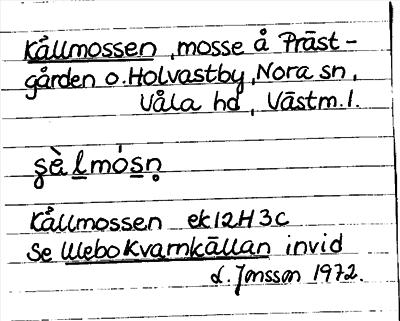 Källmossen, mosse å Präst-
gården o. Holvastby, Nora sn,
Våla hd, Västm. l.
s̯è l̲mós̲n̥
Källmossen ek 12H 3c
Se Ulebo Kvarnkällan invid
L. Jonsson 1972.